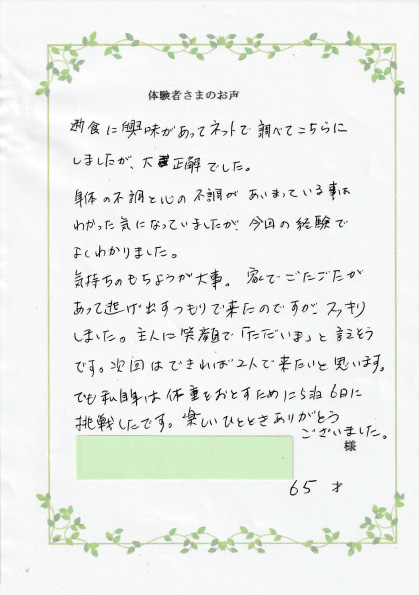 体験者さまのお声
断食に興味があってネットで調べてこちらに
しましたが、大正解でした。
身体の不調と心の不調があいまっている事は
わかった気になっていましたが、今回の経験で
よくわかりました。
気持ちのもちようが大事。家でごたごたが
あって逃げ出すつもりで来たのですが、スッキリ
しました。主人に笑顔で「ただいま」と言えそう
です。次回はできれば2人で来たいと思います。
でも私自身は体重をおとすために5泊6日に
挑戦したです。楽しいひとときありがとう
ございました。
様
65才